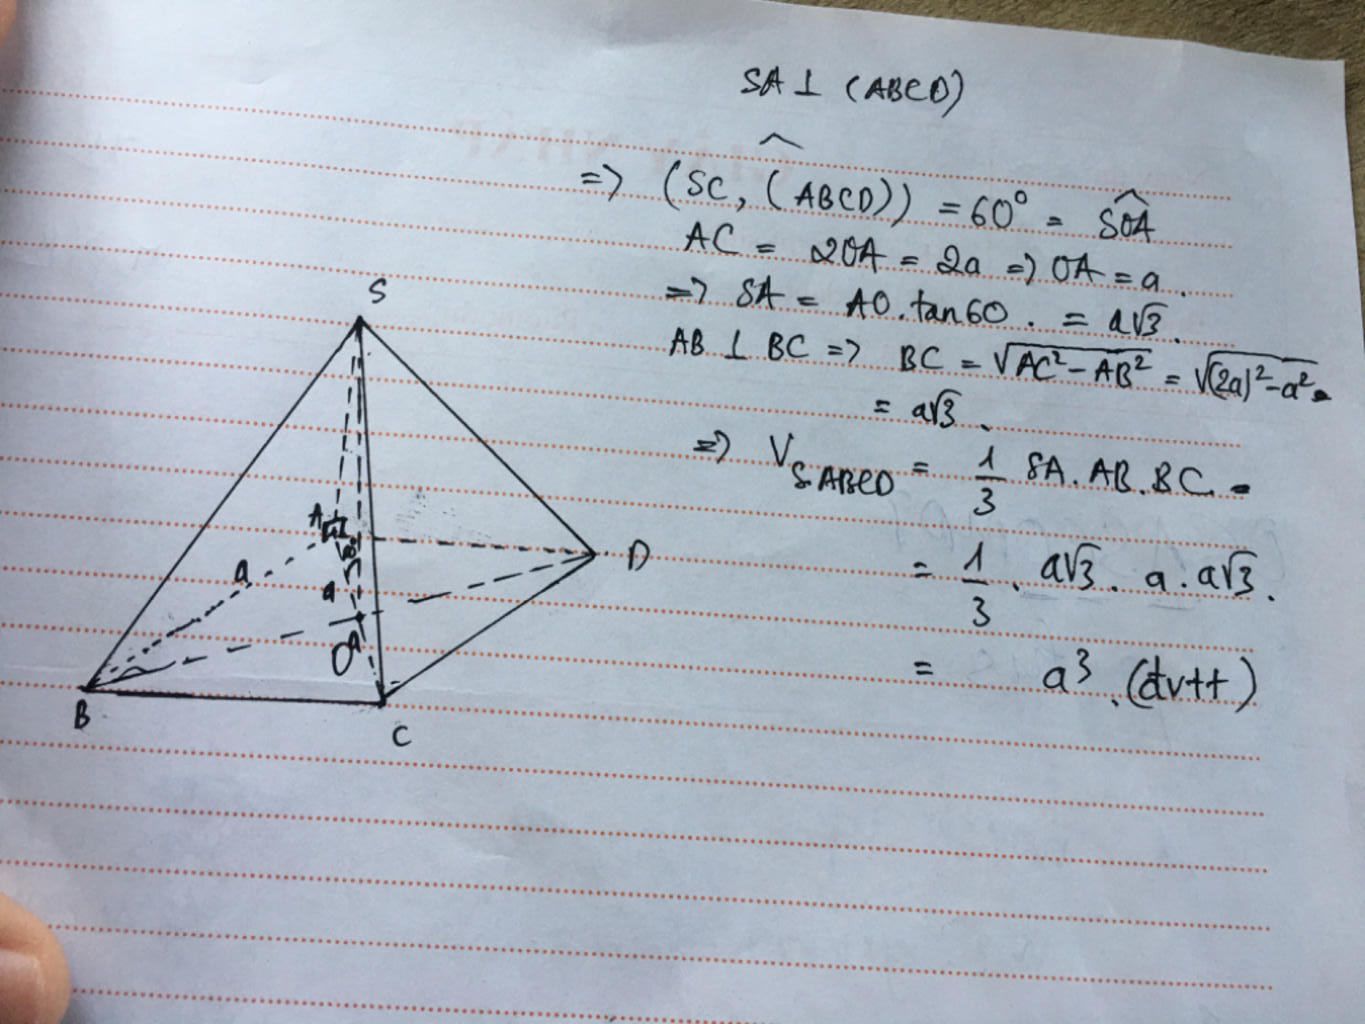 SA ⊥ (ABCD)
=> (SC, (ABCD)) = 60° = SOA
AC = 2OA = 2a => OA = a.
=> SA = AO.tan60. = a√3.
AB ⊥ BC => BC = √AC²-AB² = √(2a)²-a² =
= a√3.
=> V S ABCD = 1/3 SA.AB.BC =
= 1/3 . a√3 . a . a√3.
= a³.(đvtt)
S
A
60°
a
D
a
O
B
C